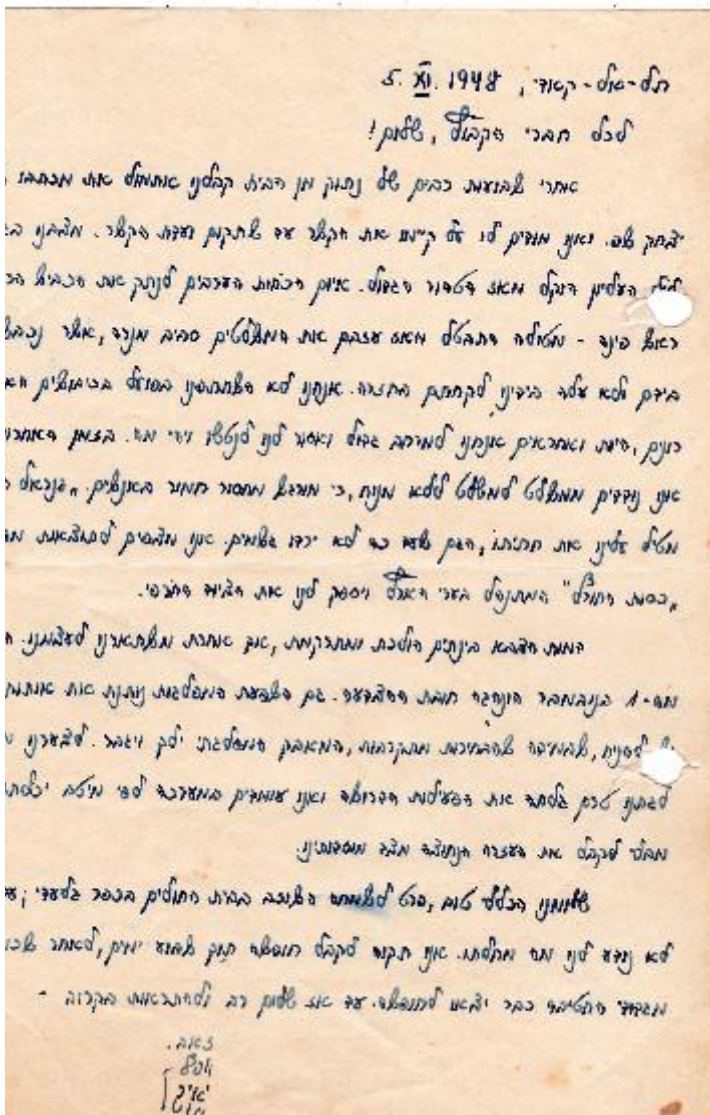 תל-אל-קאדי, 5. XI. 1948
לכל חברי הקבוץ, שלום!
אחרי שבועות רבים של נתוק מן הבית קבלנו אתמול את מכתבו
יצחק שם. ואנו מודים לו על קיימו את הקשר עד שתקום ועדת הקשר. מצבנו
העליון הוקל מאז הטהור הגדול. איום הכוחות הערבים לנתק את הכביש
ראש פינה - מטולה התבטל מאז עזבם את המשלטים סביב מנרה, אשר
בידם ולא עלה בידינו לקחתם חזרה. אנחנו לא השתתפנו בפועל בכיבושים
רונים, היות ואחראים אנחנו למרחב גדול ואסור לנו לנטשו ויהי מה. בזמן
אנו נודדים ממשלט למשלט ללא מנוח, כי מורגש מחסור חמור באנשים. "גנראל
מטיל עלינו את חתיתו, הגם שעד כה לא ירדו גשמים. אנו מצפים לתוצאות
"כסות החורף" המתנהל בערי הארץ ויספק לנו את הציוד החרפי.
דמות הצבא בינתים הולכת ומתרקמת, אך אחרת משתארנו לעצמנו.
מה-1 בנובמבר הונהגה חובת ההצדעה. גם השפעת המפלגות נותנת את אותותיה
להניח, שבמידה שהבחירות מתקרבות, המאבק המפלגתי ילך ויגבר. לצערנו
טרם גלתה את הפעילות הדרושה ואנו עומדים במערכה לפי מיטב יכלתנו
מבלי לקבל את העזרה הנחוצה מצד מוסדותינו.
שלומנו הכללי טוב, פרט השוכב בבית החולים בכפר גלעדי;
לא נודע לנו מה מחלתו. אנו תקוה לקבל חופשה תוך שבוע ימים, לאחר
מגדוד החטיבה כבר יצאו לחופשה. עד אז שלום רב ולהתראות בקרוב -
זאב.